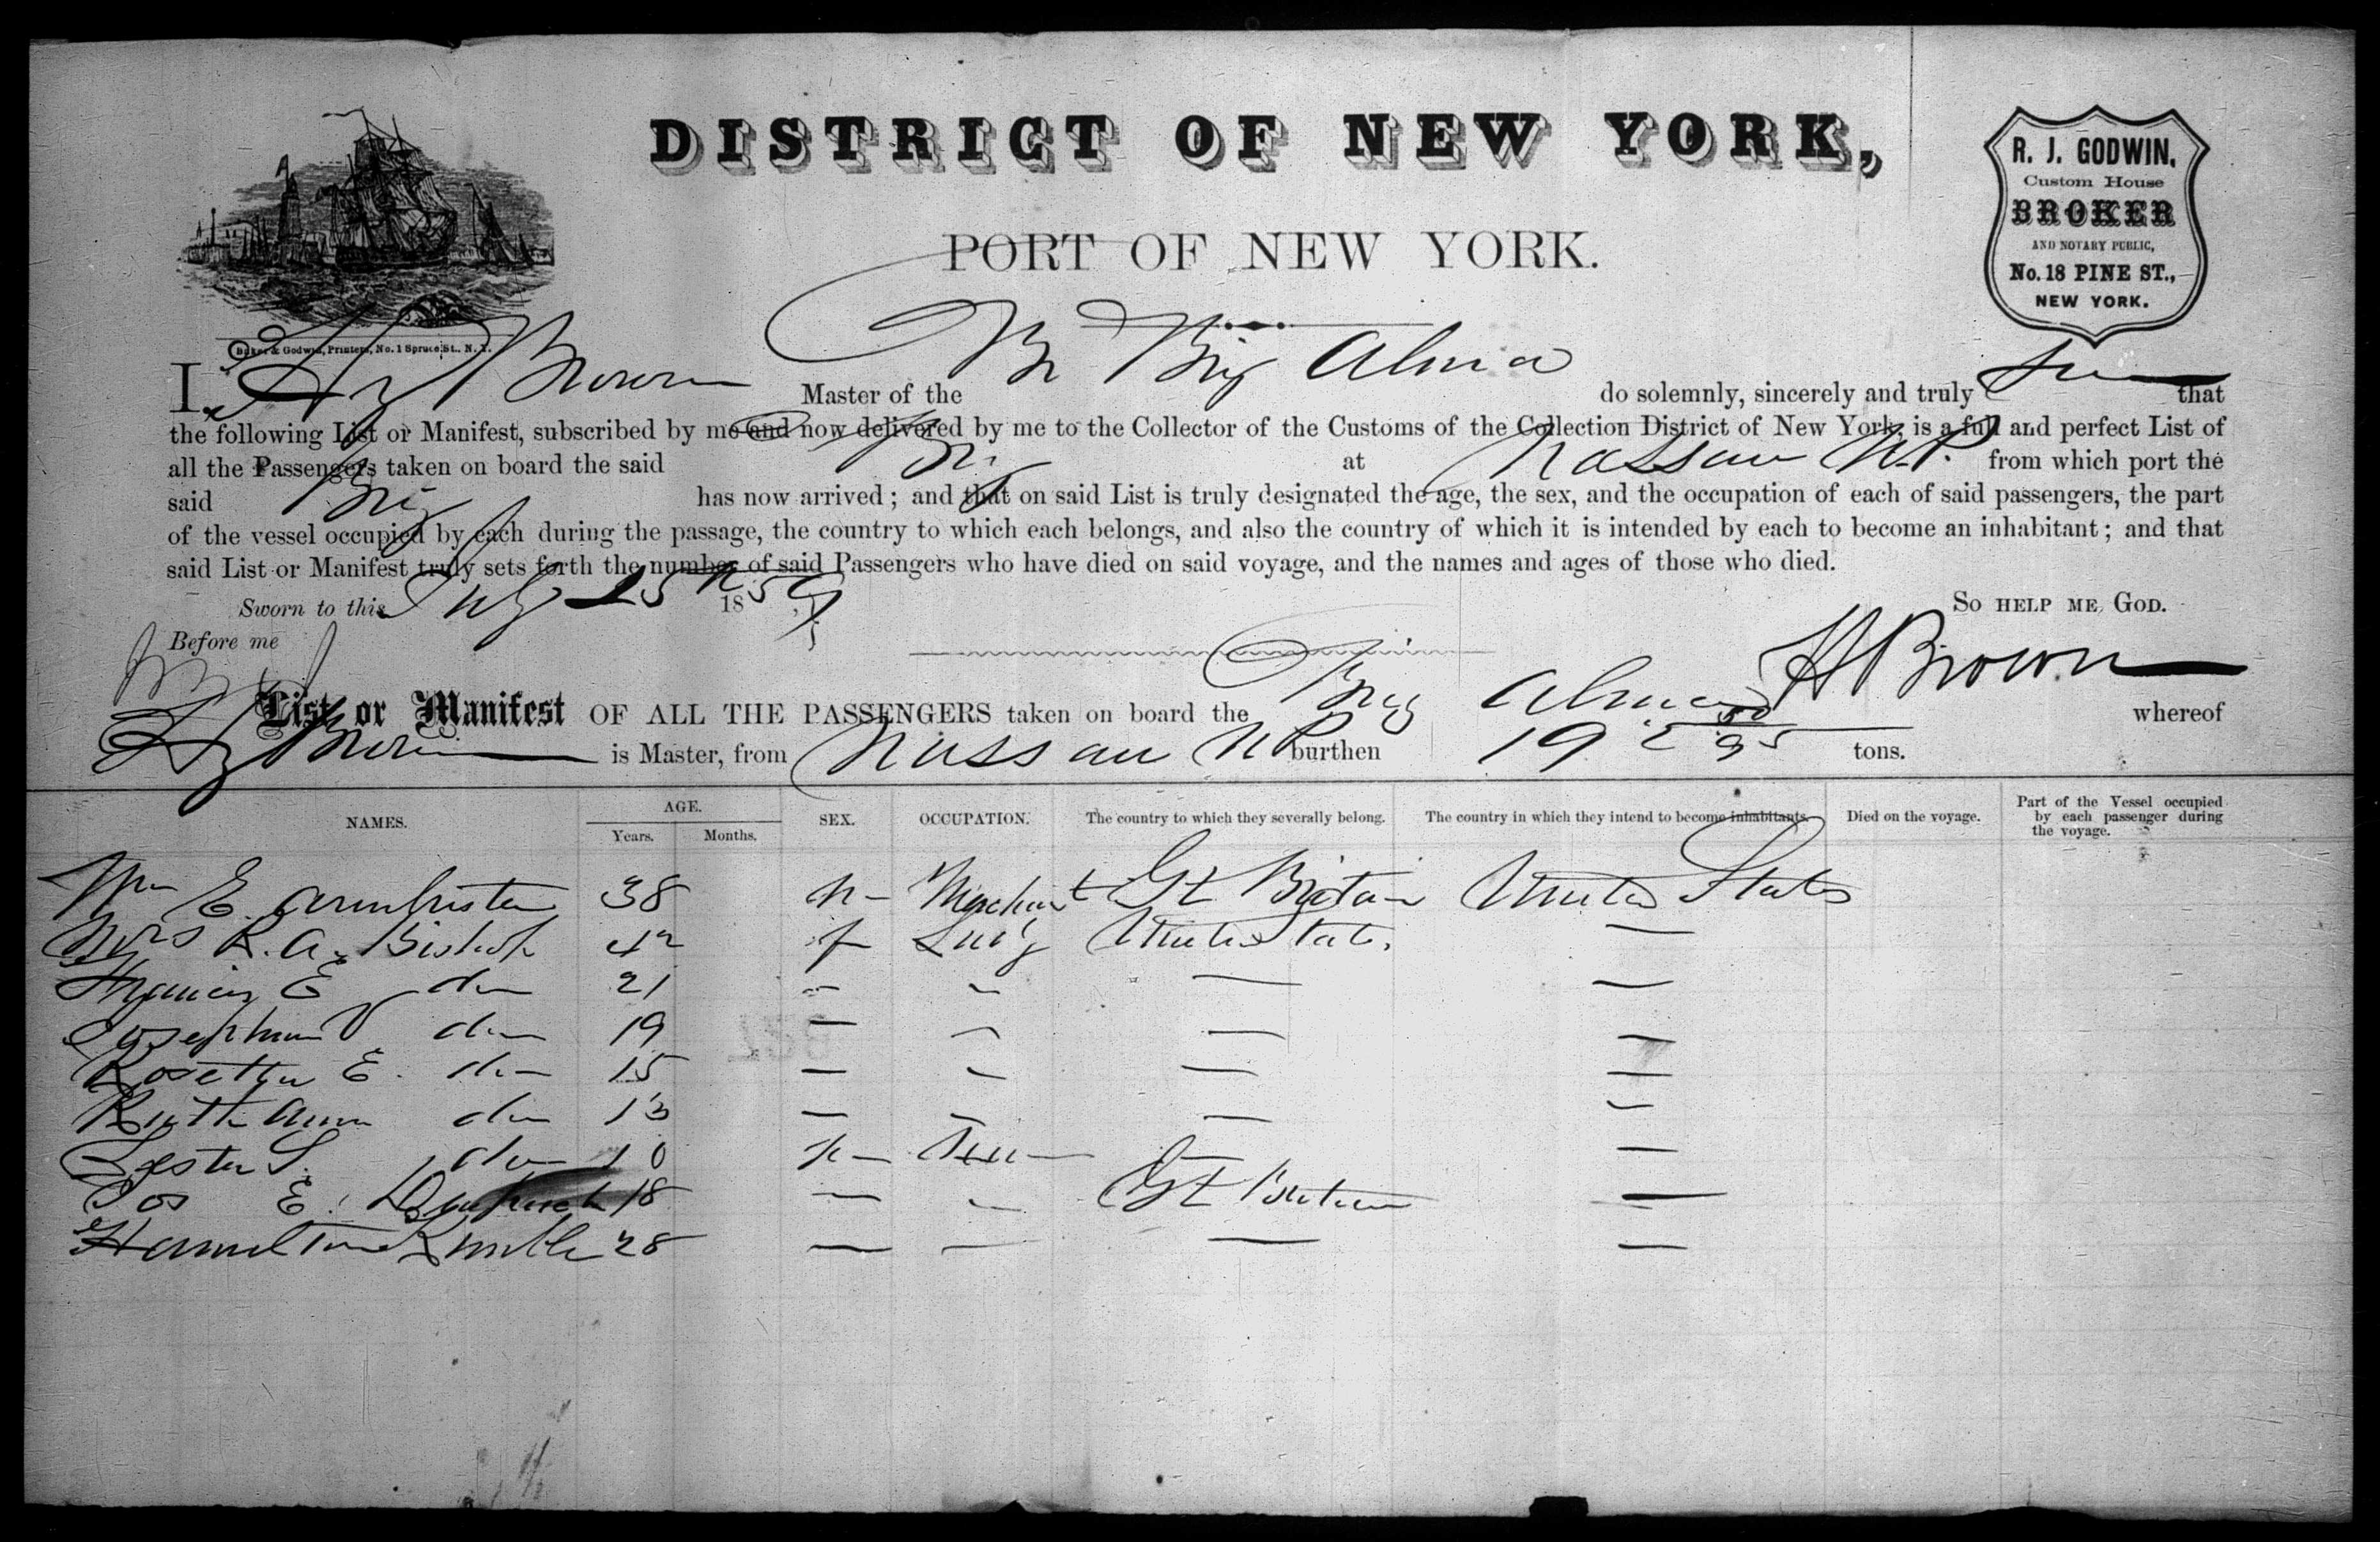 DISTRICT OF NEW YORK,
PORT OF NEW YORK.
R. J. GODWIN,
Custom House
BROKER
AND NOTARY PUBLIC,
No. 18 PINE ST.,
NEW YORK.
Baker & Godwin, Printers, No. 1 Spruce St., N. Y.
I, Hy Brown Master of the Br Brig Alma do solemnly, sincerely and truly that
the following List or Manifest, subscribed by me and now delivered by me to the Collector of the Customs of the Collection District of New York, is a full and perfect List of
all the Passengers taken on board the said Brig at Nassau N.P. from which port the
said Brig has now arrived; and that on said List is truly designated the age, the sex, and the occupation of each of said passengers, the part
of the vessel occupied by each during the passage, the country to which each belongs, and also the country of which it is intended by each to become an inhabitant; and that
said List or Manifest truly sets forth the number of said Passengers who have died on said voyage, and the names and ages of those who died.
Sworn to this July 25th 1859, SO HELP ME GOD.
Before me H Brown
List or Manifest OF ALL THE PASSENGERS taken on board the Brig Alma whereof
Hy Brown is Master, from Nassau NP burthen tons.
NAMES. AGE. Years. Months. SEX. OCCUPATION. The country to which they severally belong. The country in which they intend to become inhabitants. Died on the voyage. Part of the Vessel occupied by each passenger during the voyage.
Wm E. Armbrister 38 m Merchant Gt Britain United States
Mrs R. A. Bishop 42 f Lady United States —
Francis E do 21 — — — —
Josephine do 19 — — — —
Rosetta E. do 15 — — — —
Ruth Ann do 13 — — — —
Lester S. do 10 m — —
Jos E. 18 — — Gt Britain —
Hamilton 28 — — — —